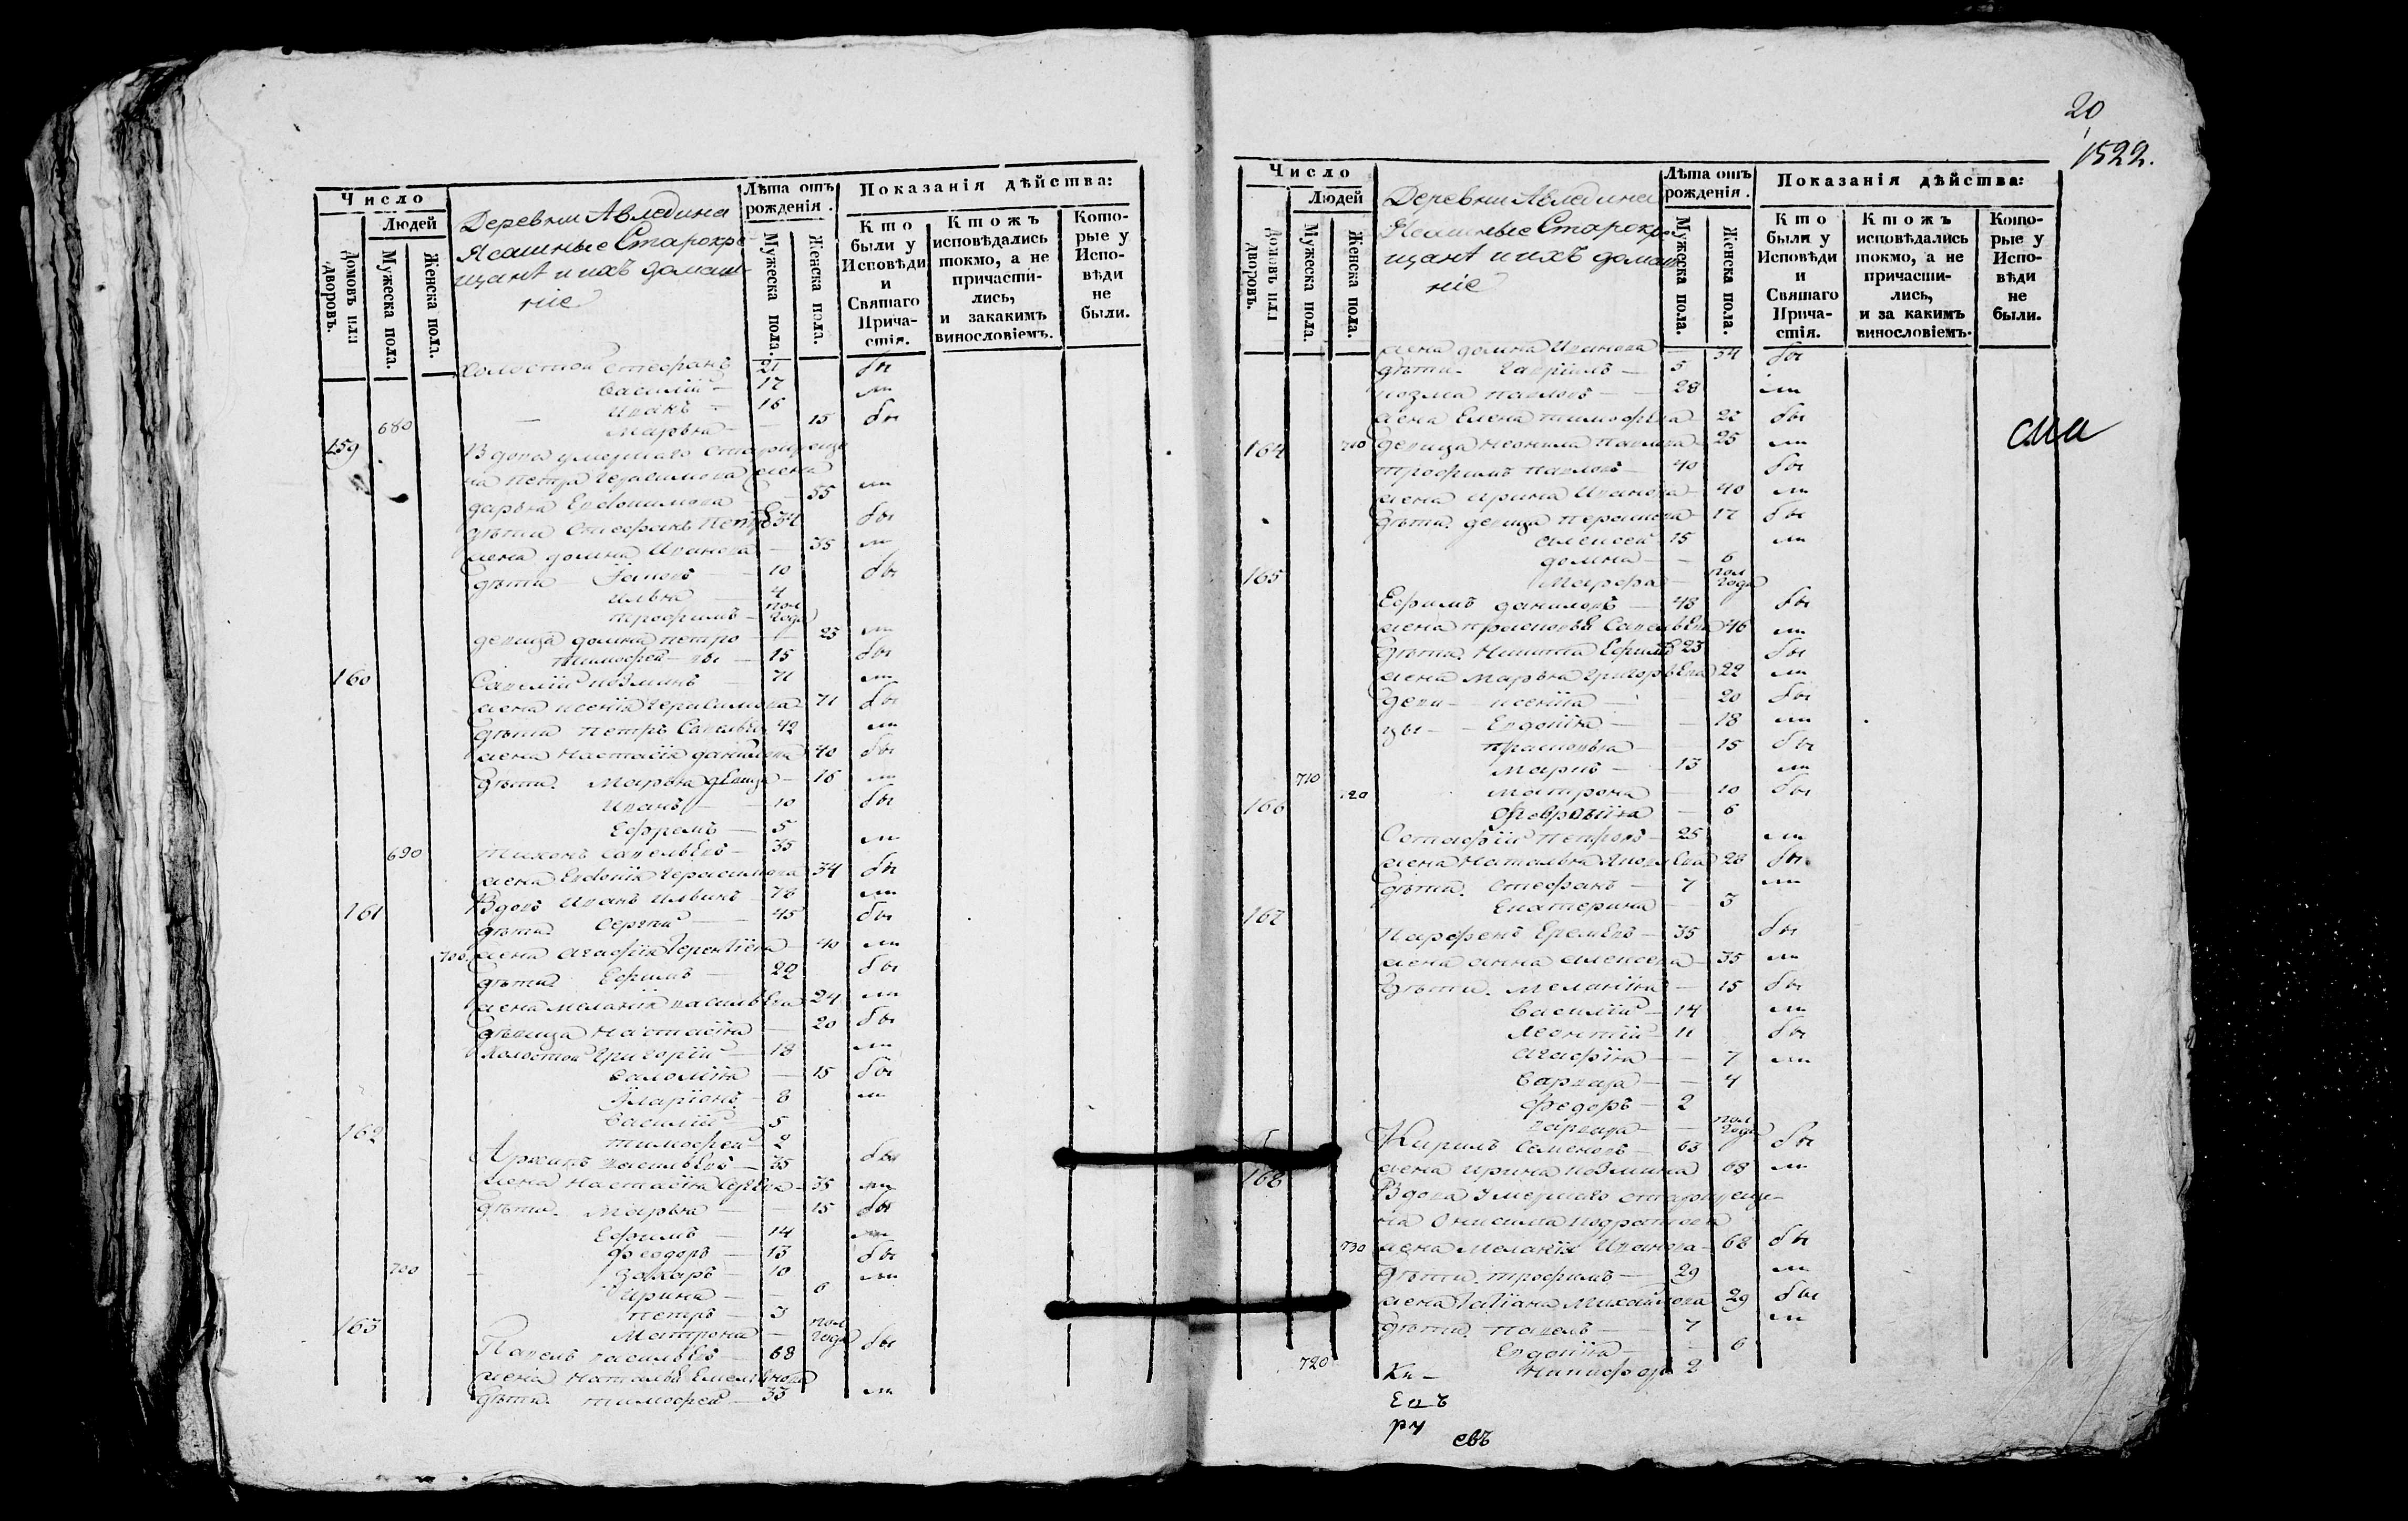 Число
Людей
Домовъ или дворовъ.
Мужеска пола.
Женска пола.
Деревни Авледина
Ясашные Старокре-
щанѣ и ихъ домаш-
ніе
Лѣта отъ рожденія.
Мужеска пола.
Женска пола.
Показанія дѣйства:
Кто были у Исповѣди и Святаго Причастія.
Ктожъ исповѣдались токмо, а не причастились, и закакимъ винословіемъ.
Которые у Исповѣди не были.
холостой Стефанъ 21 бы
Василій 17 ли
Иванъ 16
680 Марья 15 бы
159 Вдова умершаго старокреще
на Петра Герасимова жена
дарья Евдокимова 55 ли
дѣти Стефанъ Петр 34 бы
жена домна Иванова 35 ли
дѣти 10 бы
Илья 4
Трофимъ пол года
девица домна Петро 23 ли
Тимофей вы 15 бы
160 Савелій Козминъ 71 ли
жена Ксенія Герасимова 71 бы
дѣти Петръ Савельев 42 ли
жена Настасія данилова 40 бы
дѣти Марья девица 16 ли
Иванъ 10 бы
Ефремъ 5
690 Тихонъ Савельевъ 35 ли
жена Евдокія Герасимова 34 бы
161 Вдовъ Иванъ Ильинъ 78 ли
дѣти Сергѣй 45 бы
700 жена Агафія Терентіева 40 ли
дѣти Ефимъ 22 бы
жена Меланія Васильева 24 ли
дѣвица Настасія 20 бы
холостой Григорій 18 ли
Саломія 15 бы
Иларіонъ 8 ли
Василій 5
162 Тимофей 2
Васильевъ 35 бы
жена Настасія 35 ли
дѣти Марья 15 бы
Ефимъ 14 ли
Феодоръ 13 бы
700 Захаръ 10 ли
Ирина 6
Петръ 3
163 Матрона пол года
Павелъ Васильевъ 68 бы
жена Наталья Емельянова
дѣти Тимофей 33 ли
20
1522.
Число
Людей
Домовъ или дворовъ.
Мужеска пола
Женска пола.
Деревни Авледина
Ясашные Старокре
щанѣ и ихъ домаш
ніе
Лѣта отъ рожденія.
Мужеска пола.
Женска пола.
Показанія дѣйства:
Кто были у Исповѣди и Святаго Причастія.
Ктожъ исповѣдались токмо, а не причастились, и за какимъ винословіемъ.
Которые у Исповѣди не были.
жена домна Иванова 34 бы
дѣти Гаврилъ 5
Козма Павловъ 28 ли
жена Елена Тимофѣева 22 бы
164 710 девица Неонила Павлова 25 ли
Трофимъ Павловъ 40 бы
жена Ирина Иванова 40 ли
дѣти девица 17 бы
Алексей 15 ли
домна 6
165 Марфа пол года
Ефимъ даниловъ 48 бы
жена Прасковья Савельева 46 ли
дѣти Никита Ефимовъ 23 бы
жена Марья Григорьева 22 ли
деви Ксенія 20 бы
цы Евдокія 18 ли
Прасковья 15 бы
710 13 ли
720 Матрона 10 бы
166 Февронія 6
Остафій Петровъ 25 ли
жена Наталья Яковлева 28 бы
дѣти Стефанъ 7 ли
Екатерина 3
167 Парфенъ Еремѣевъ 35 бы
жена Анна Алексеева 35 ли
дѣти Меланія 15 бы
Василій 14 ли
Леонтій 11 бы
Агафія 7 ли
Варвара 4
Федоръ 2
пол года
Кирилъ Семеновъ 63 бы
жена Ирина Козмина 68 ли
168 Вдова умершаго старокреще-
на Онисима Кодратьева
730 жена Меланія Иванова 68 бы
дѣти Трофимъ 29 ли
жена Татіана Михайлова 29 бы
дѣти Павелъ 7 ли
Евдокія 6
720 Никифоръ 2
Кн-
Евъ
ру
евъ